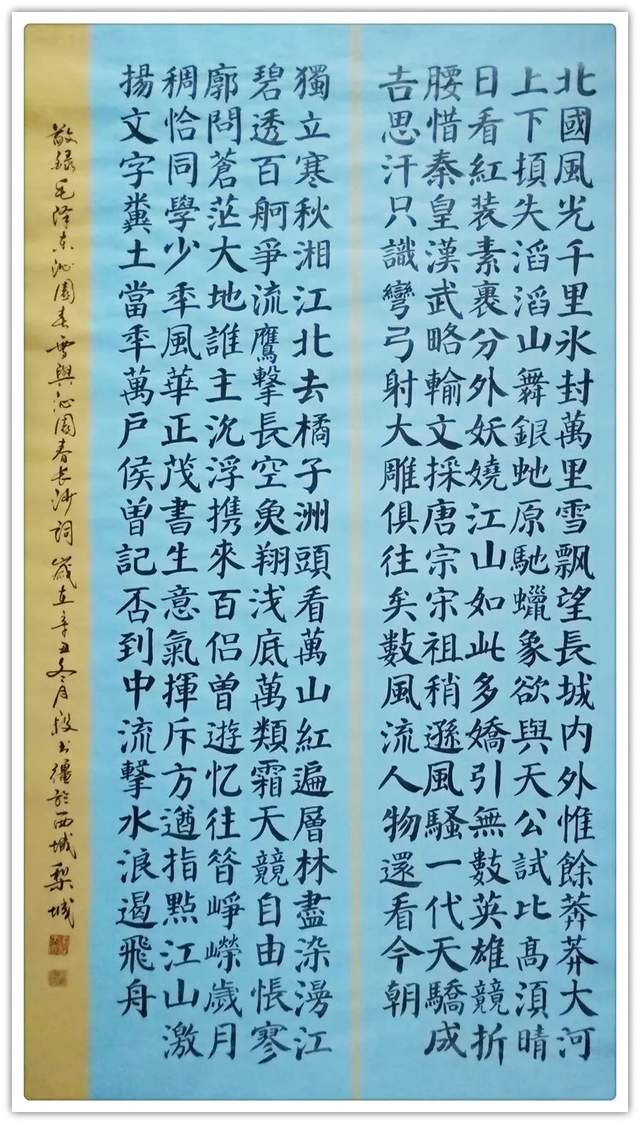 北國風光千里氷封萬里雪飄望長城内外惟餘莽莽大河
上下頓失滔滔山舞銀虵原馳蠟象欲與天公試比高湏晴
日看紅装素裹分外妖嬈江山如此多嬌引無數英雄競折
腰惜秦皇漢武略輸文採唐宗宋祖稍遜風騷一代天驕成
吉思汗只識彎弓射大雕俱往矣數風流人物還看今朝
獨立寒秋湘江北去橘子洲頭看萬山紅遍層林盡染漫江
碧透百舸爭流鷹擊長空魚翔浅底萬類霜天競自由悵寥
廓問蒼茫大地誰主沉浮携來百侣曾遊忆往昔崢嶸歲月
稠恰同學少秊風華正茂書生意氣揮斥方遒指點江山激
揚文字糞土當秊萬戶侯曾記否到中流擊水浪遏飛舟
敬録毛澤东沁園春雪與沁園春長沙詞歲在辛丑冬月段書彊於西域梨城